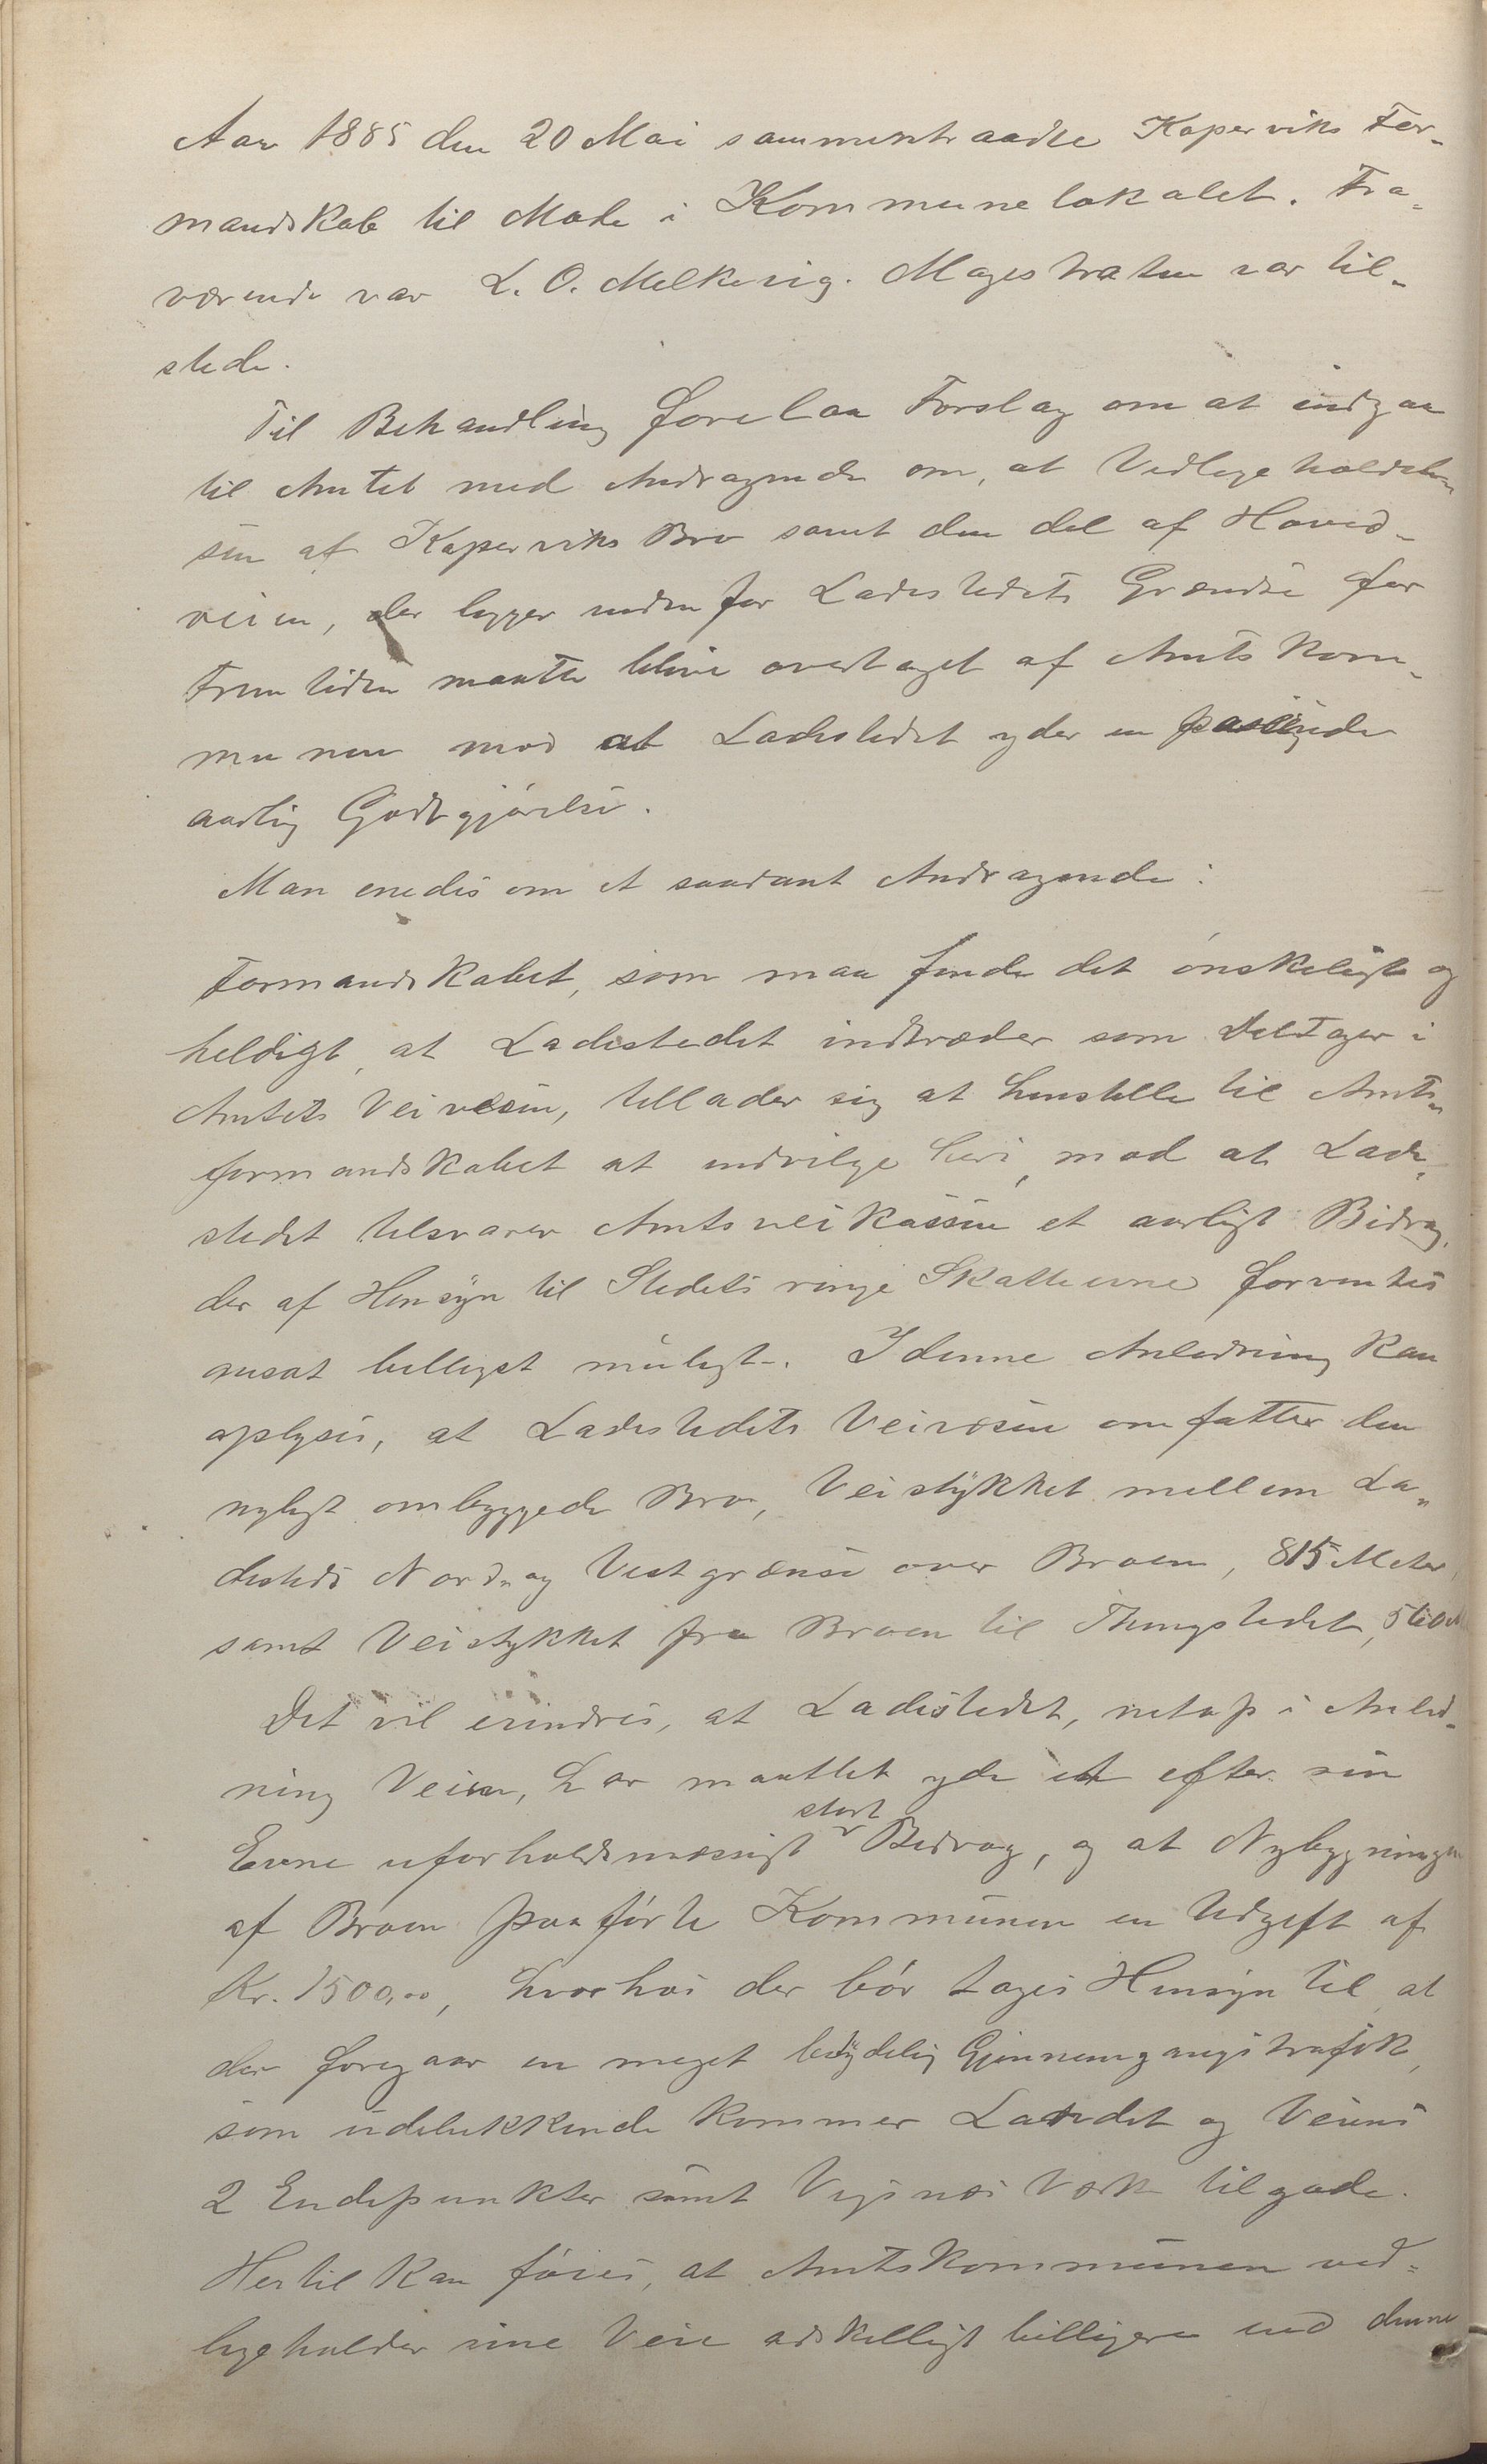 Aar 1885 den 20 Mai sammentraadte Koperviks For-
mandskab til Møde i Kommunelokalet. Fra-
værende var L. O. Melkevig. Magistraten var til-
stede.
Til Behandling forelaa Forslag om at indgaa
til Amtet med Andragende om, at Vedligeholdel-
sen af Koperviks Bro samt den del af Hoved-
veien, der ligger indenfor Ladestedets Grændse for
Fremtiden maatte blive overtaget af Amtskom-
munen mod at Ladestedet yder en passende
aarlig Godtgjørelse.
Man enedes om et saadant Andragende:
Formandskabet, som maa finde det ønskeligt og
heldigt, at Ladestedet indtræder som Deltager i
Amtets Veivæsen, tillader sig at henstille til Amts-
formandskabet at indvilge heri, mod at Lade-
stedet tilsvarer Amtsveikassen et aarligt Bidrag,
der af Hensyn til Stedets ringe Skatteevne forventes
ansat billigst muligt. I denne Anledning kan
oplyses, at Ladestedets Veivæsen omfatter den
nyligt ombyggede Bro, Veistykket mellem La-
desteds Nord- og Vestgrænse over Broen, 815 Meter,
samt Veistykket fra Broen til Thingstedet,
Det vil erindres, at Ladestedet, netop i Anled-
ning Veien, har maattet yde et efter sin
Evne uforholdsmæssigt stort Bidrag, og at Nybygningen
af Broen paaførte Kommunen en Udgift af
Kr. 1500,00, hvorhos der bør tages Hensyn til, at
der foregaar en meget betydelig Gjennemgangstrafik,
som udelukkende kommer Landet og Veiens
2 Endepunkter samt Vigsnæs Værk tilgode.
Hertil kan føies, at Amtskommunen ved-
ligeholder sine Veie adskilligt billigere end denne